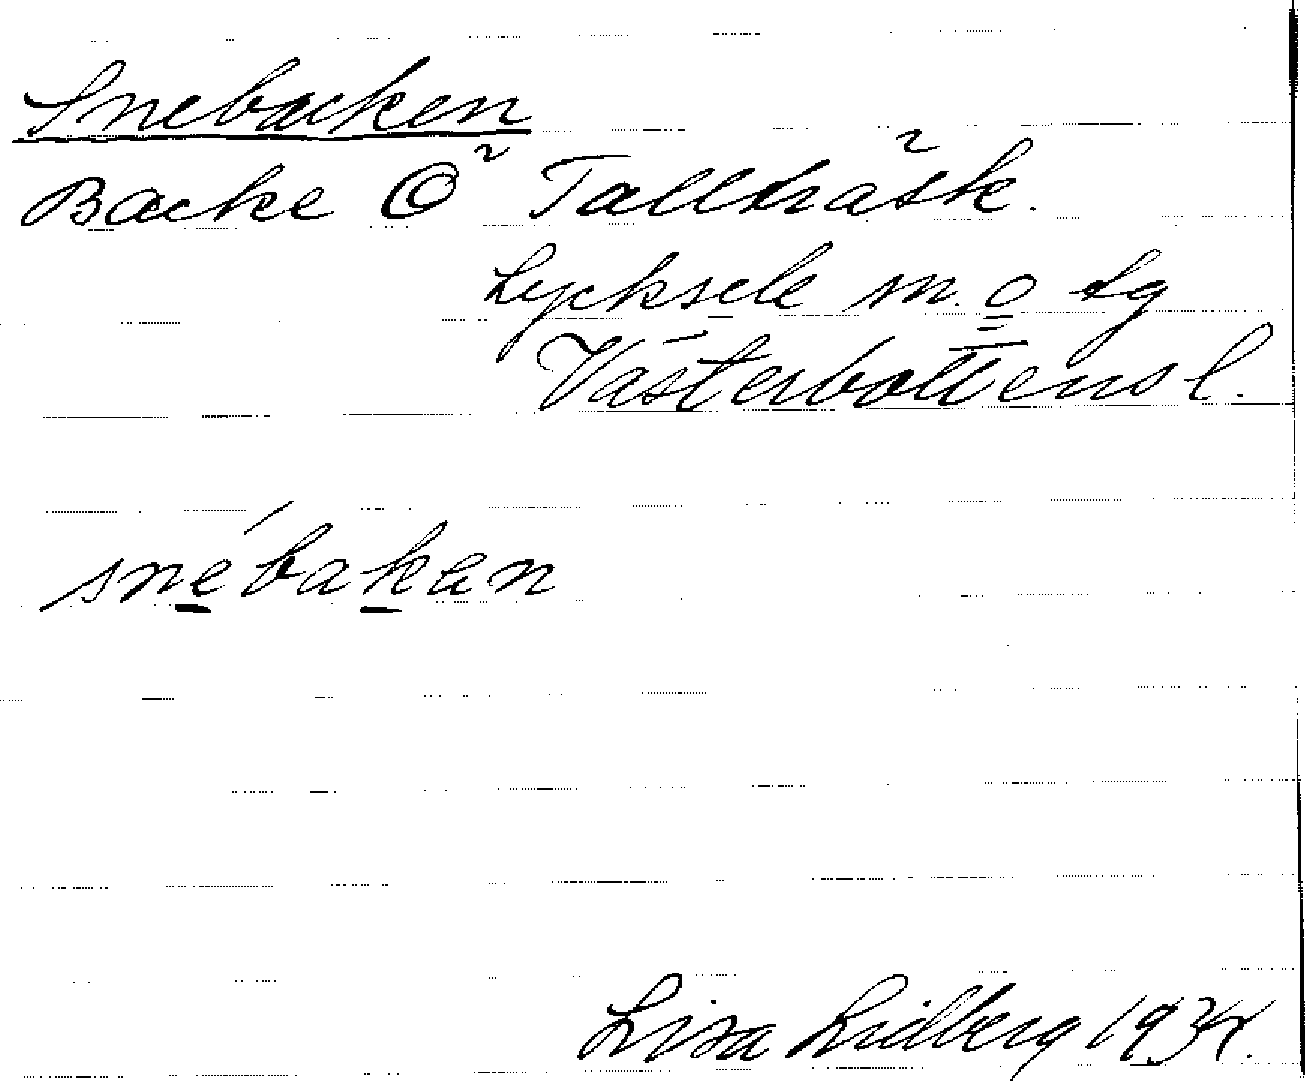 Snebacken
Backe Ö Tallträsk.
Lycksele sn. o lg
Västerbottens l.
snébaken
Lisa Lidberg 1934.